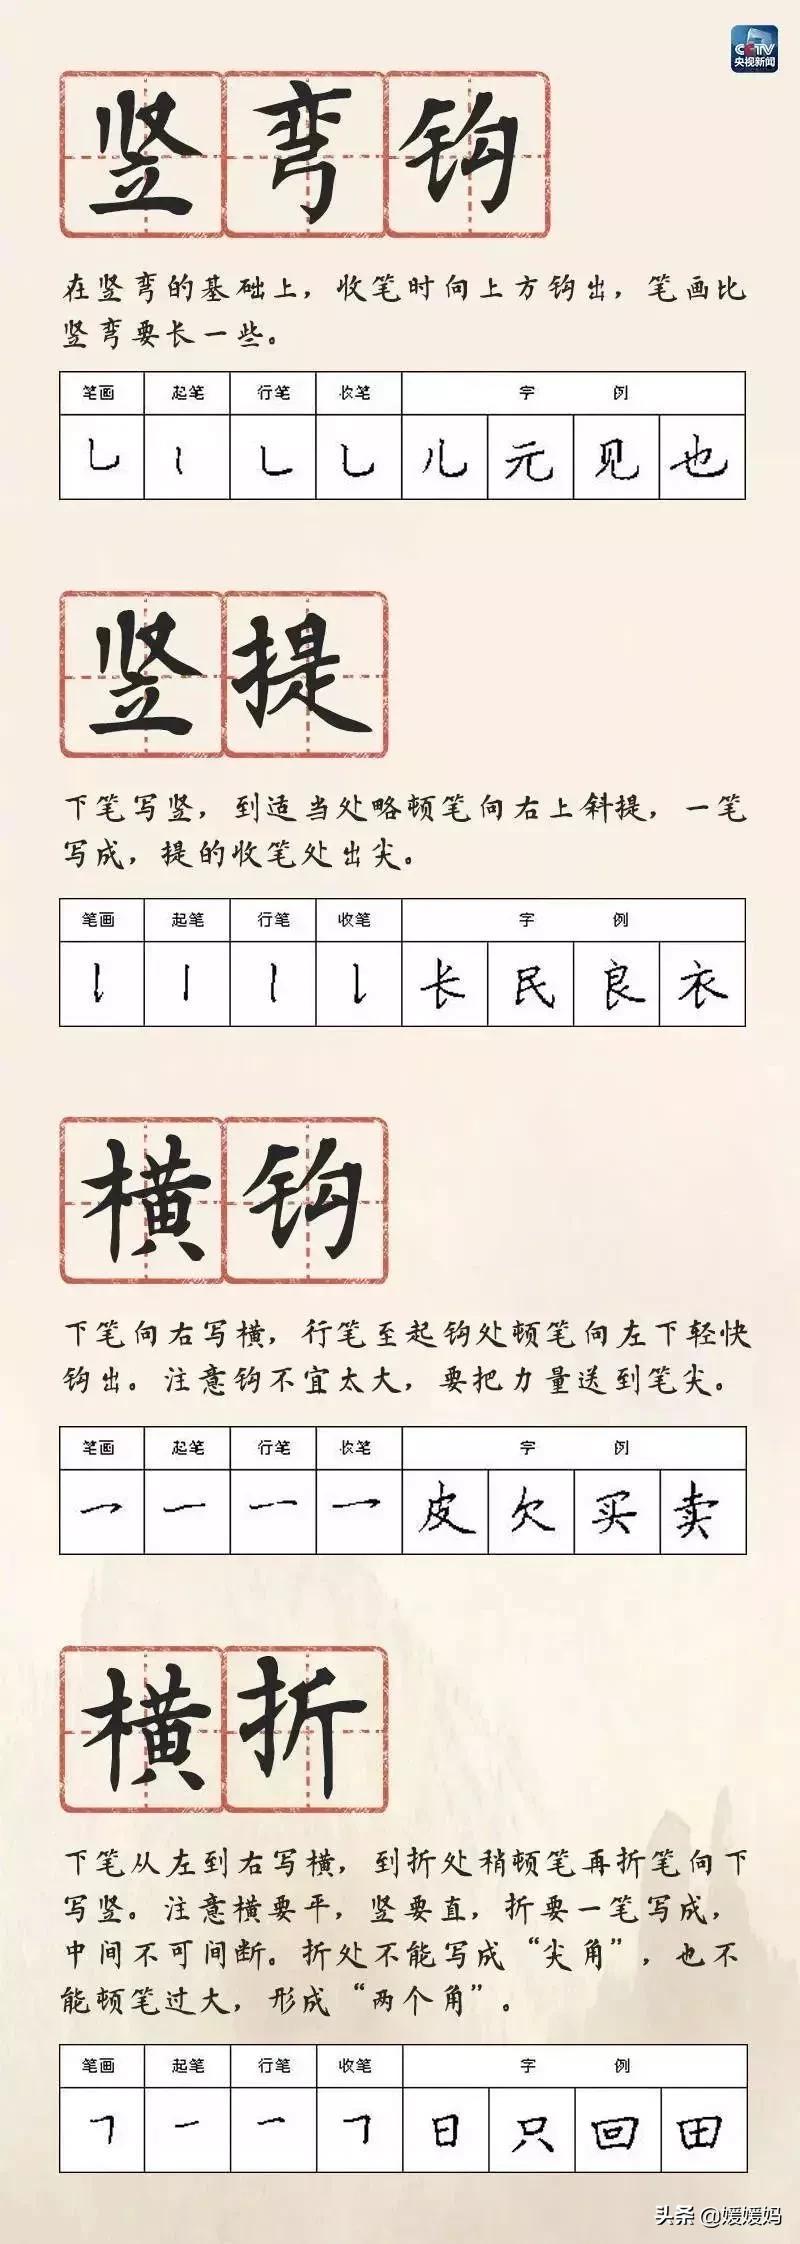 CCTV
央视新闻
竖弯钩
在竖弯的基础上，收笔时向上方钩出，笔画比
竖弯要长一些。
笔画 起笔 行笔 收笔 字例
乚 丨 乚 乚 儿 元 见 也
竖提
下笔写竖，到适当处略顿笔向右上斜提，一笔
写成，提的收笔处出尖。
笔画 起笔 行笔 收笔 字例
长 民 良 衣
横钩
下笔向右写横，行笔至起钩处顿笔向左下轻快
钩出。注意钩不宜太大，要把力量送到笔尖。
笔画 起笔 行笔 收笔 字例
皮 欠 买 卖
横折
下笔从左到右写横，到折处稍顿笔再折笔向下
写竖。注意横要平，竖要直，折要一笔写成，
中间不可间断。折处不能写成“尖角”，也不
能顿笔过大，形成“两个角”。
笔画 起笔 行笔 收笔 字例
𠃍 一 一 𠃍 日 只 回 田
头条 @媛媛妈